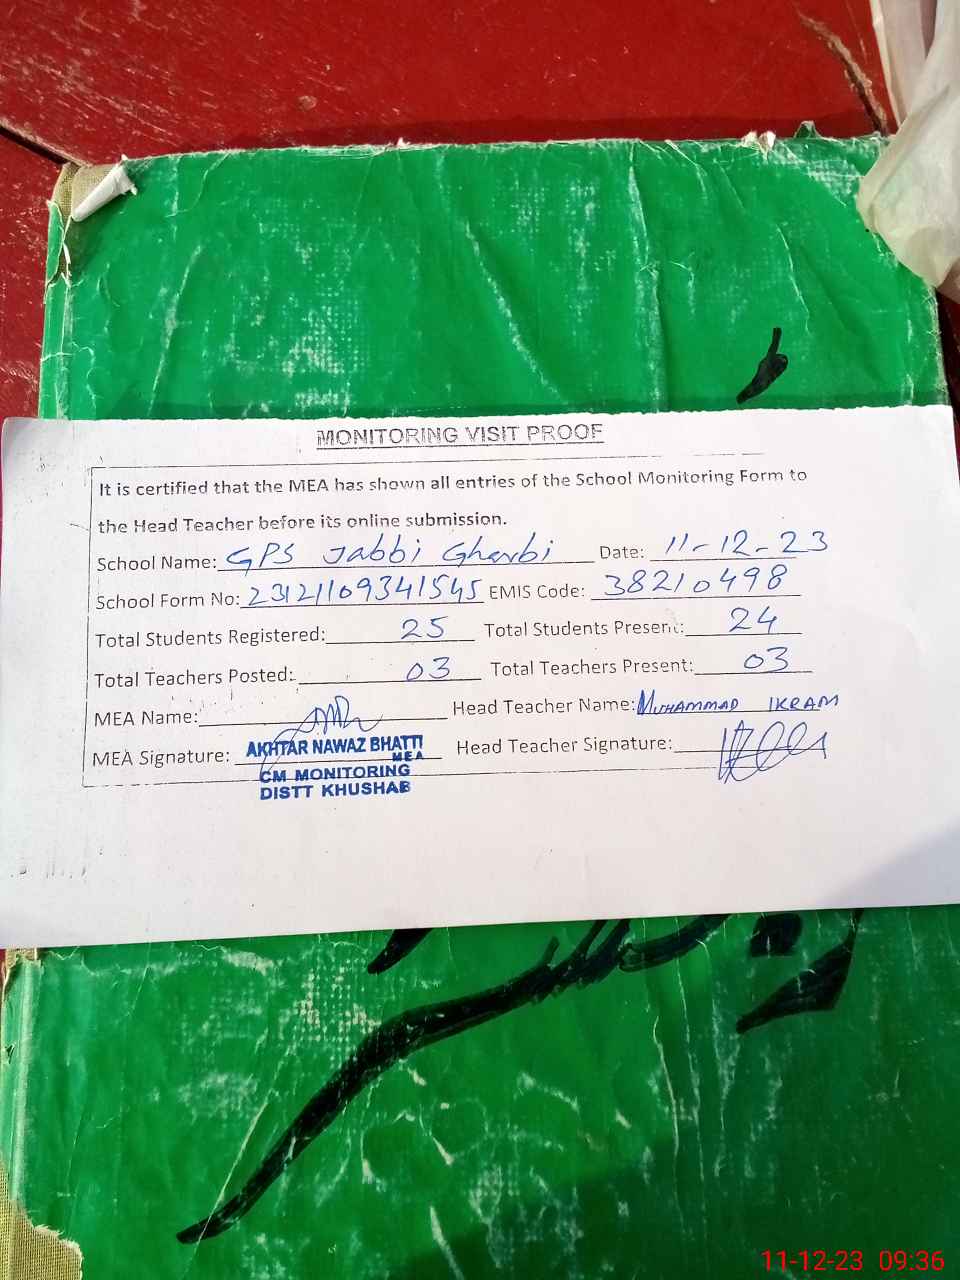 MONITORING VISIT PROOF
It is certified that the MEA has shown all entries of the School Monitoring Form to
the Head Teacher before its online submission.
School Name: GPS Jabbi Gharbi Date: 11-12-23
School Form No: 23121109341545 EMIS Code: 38210498
Total Students Registered: 25 Total Students Present: 24
Total Teachers Posted: 03 Total Teachers Present: 03
MEA Name: Head Teacher Name: MUHAMMAD IKRAM
MEA Signature: AKHTAR NAWAZ BHATTI Head Teacher Signature:
MEA
CM MONITORING
DISTT KHUSHAB
11-12-23 09:36